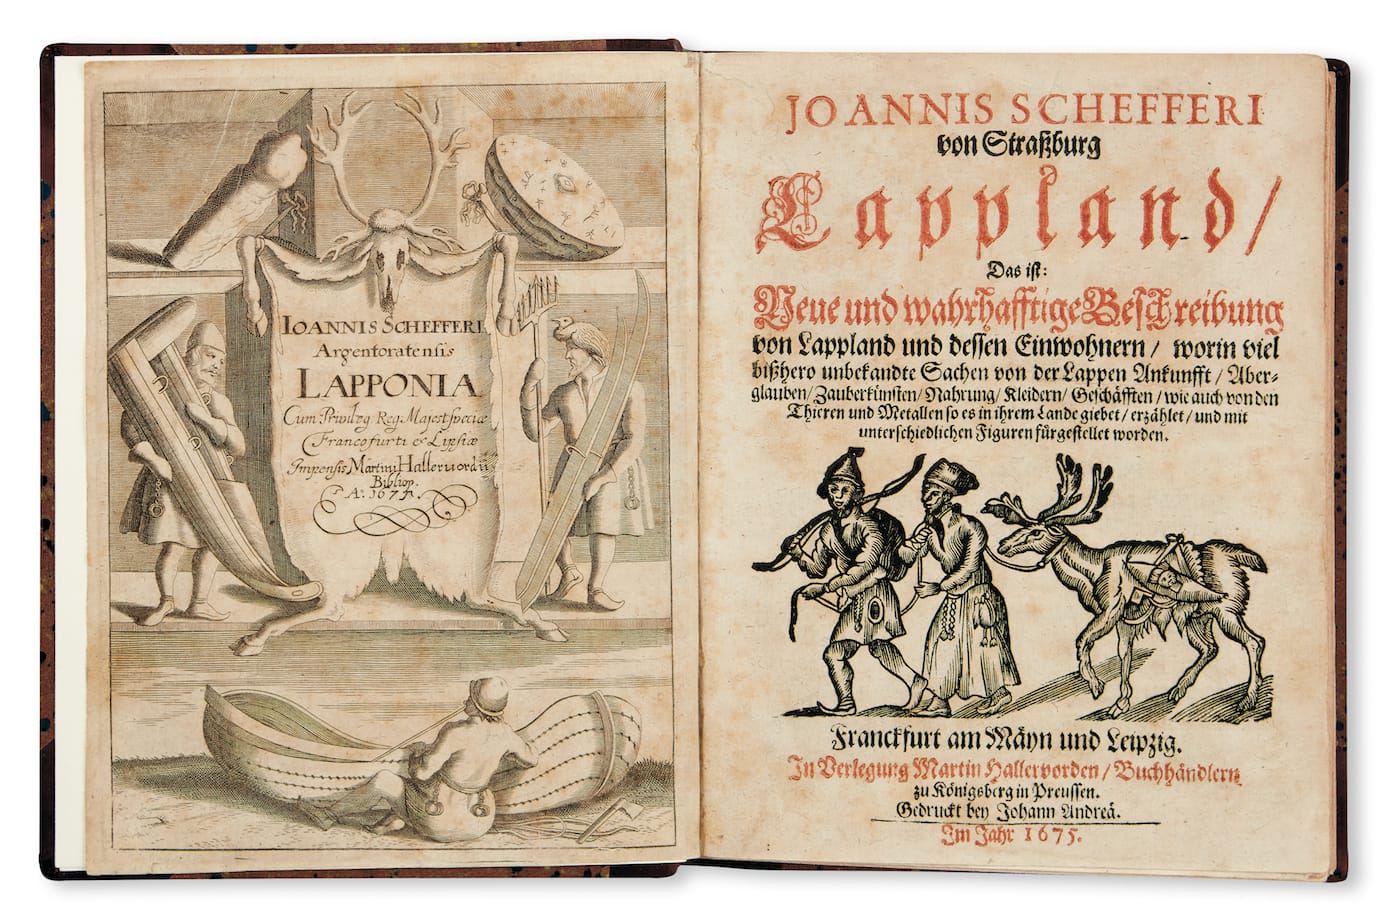 IOANNIS SCHEFFERI
Argentoratensis
LAPPONIA
Cum Privileg Reg. Majest sveciæ
Francofurti & Lipsiæ
Impensis Martini Hallervordii
Bibliop.
Aº. 167
JOANNIS SCHEFFERI
von Straßburg
Lappland/
Das ist:
Neue und wahrhafftige Beschreibung
von Lappland und dessen Einwohnern / worin viel
bißhero unbekandte Sachen von der Lappen Ankunfft / Aber-
glauben/Zauberkünsten/Nahrung/ Kleidern/ Geschäfften / wie auch von den
Thieren und Metallen so es in ihrem Lande giebet/ erzählet / und mit
unterschiedlichen Figuren fürgestellet worden.
Franckfurt am Mäyn und Leipzig.
In Verlegung Martin Hallervorden / Buchhändlern
zu Königsberg in Preussen.
Gedruckt bey Johann Andreä.
Im Jahr 1675.